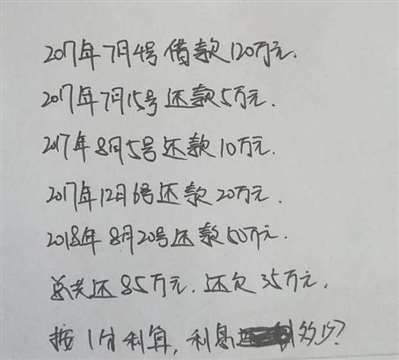 2017年7月4号借款120万元.
2017年7月15号还款5万元.
2017年8月5号还款10万元.
2017年12月6号还款20万元.
2018年8月20号还款50万元.
总共还85万元.还欠35万元,
按1分利算,利息多少?